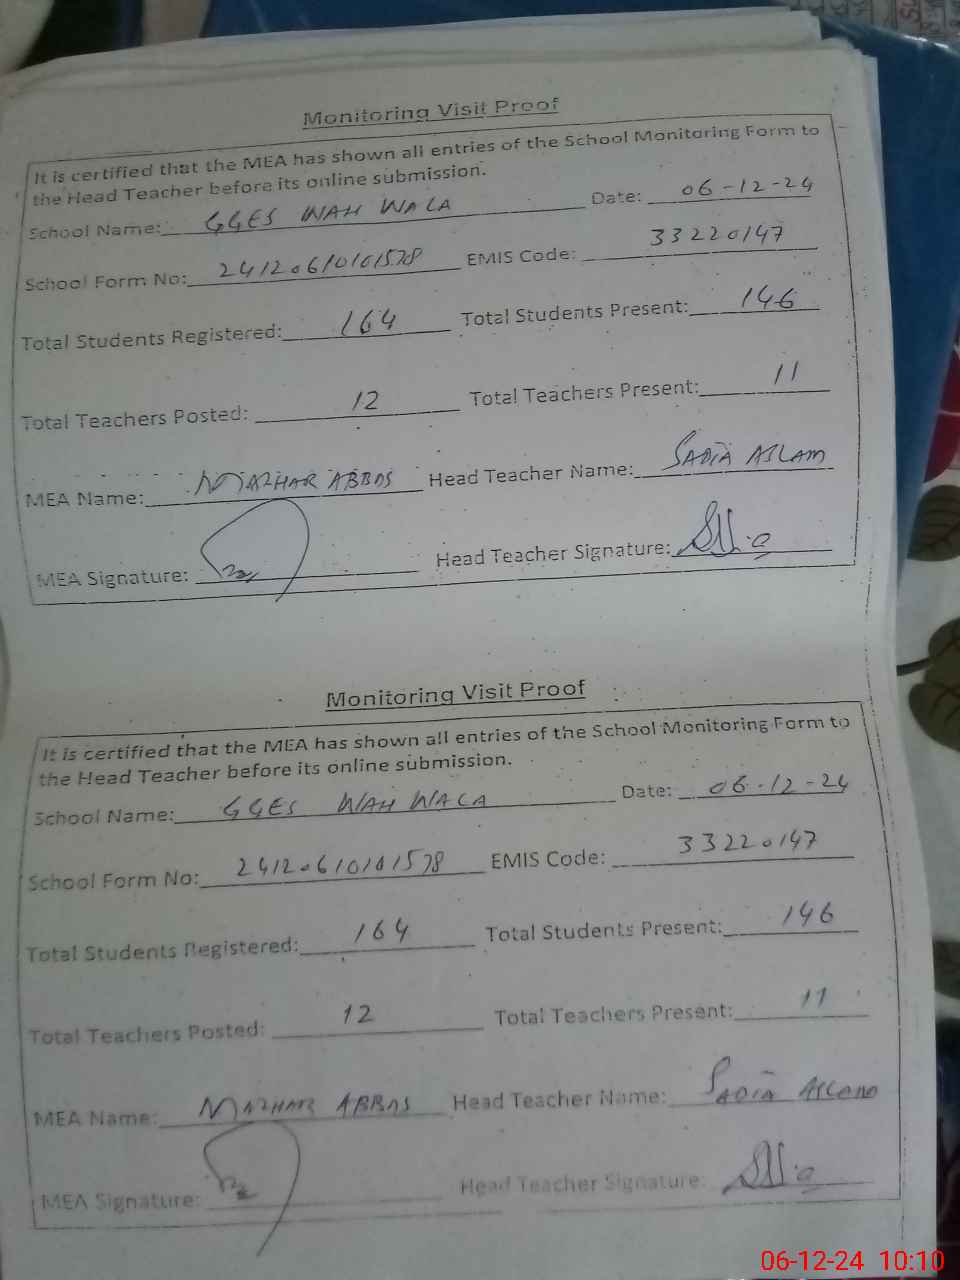 Monitoring Visit Proof
It is certified that the MEA has shown all entries of the School Monitoring Form to
the Head Teacher before its online submission.
School Name: GGES WAH WALA Date: 06-12-24
School Form No: 24120610101578 EMIS Code: 33220147
Total Students Registered: 164 Total Students Present: 146
Total Teachers Posted: 12 Total Teachers Present: 11
MEA Name: MAZHAR ABBAS Head Teacher Name: SADIA ASLAM
MEA Signature: Head Teacher Signature:
Monitoring Visit Proof
It is certified that the MEA has shown all entries of the School Monitoring Form to
the Head Teacher before its online submission.
School Name: GGES WAH WALA Date: 06-12-24
School Form No: 24120610101578 EMIS Code: 33220147
Total Students Registered: 164 Total Students Present: 146
Total Teachers Posted: 12 Total Teachers Present: 11
MEA Name: MAZHAR ABBAS Head Teacher Name: SADIA ASLAM
MEA Signature: Head Teacher Signature:
06-12-24 10:10